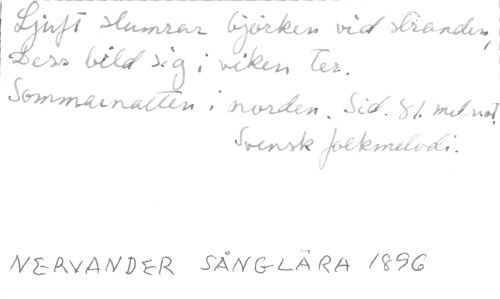 Ljuft slumrar björken vid stranden,
Dess bild sig i viken ter.
Sommarnatten i norden. Sid. 81. med not.
Svensk folkmelodi.
NERVANDER SÅNGLÄRA 1896